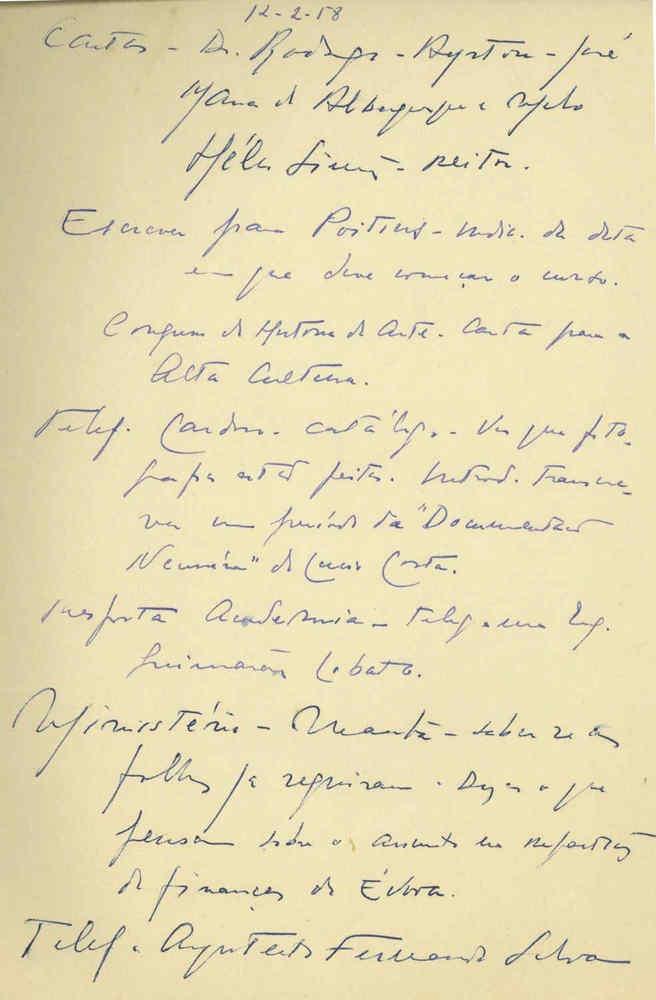 12-2-58
Cartas - Dr. Rodrigo - Ayrton - José
Maria de Albuquerque e Melo
Hélio Simões - reitor.
Escrever para Poitiers - indic. da data
em que deve começar o curso.
Congresso de História de Arte. Carta para a
Alta Cultura.
Telef. Cardoso. catálogo - Ver que foto-
grafias estão feitas. Introd. transcre-
ver um período da "Documentação
Necessária" de Lucio Costa.
resposta Academia - Telef. Eng.
Guimarães Lobato.
Ministério - saber se as
folhas já seguiram. o que
pensam sobre o assunto na repartição
de finanças de Évora.
Telef. Arquitecto Fernando Silva